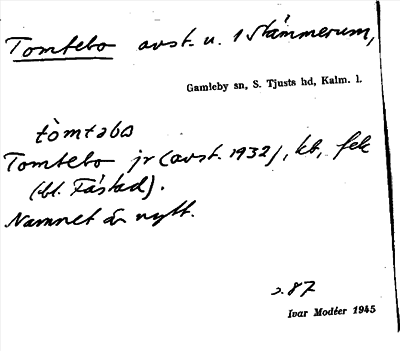 Tomtebo avst. u. 1 Stämmerum,
Gamleby sn, S. Tjusts hd, Kalm. l.
tòmtəbo
Tomtebo jr (avst. 1932), kb, fek
(bl. Fåstad).
Namnet är nytt.
s. 87
Ivar Modéer 1945